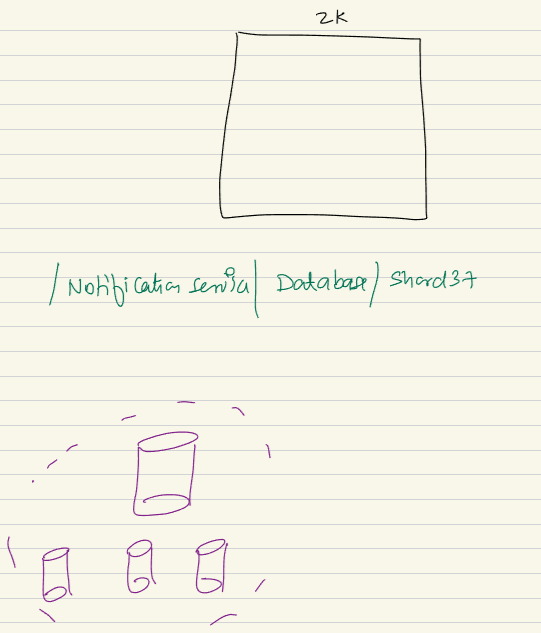 2K
/Notification service/ Database/ Shard37